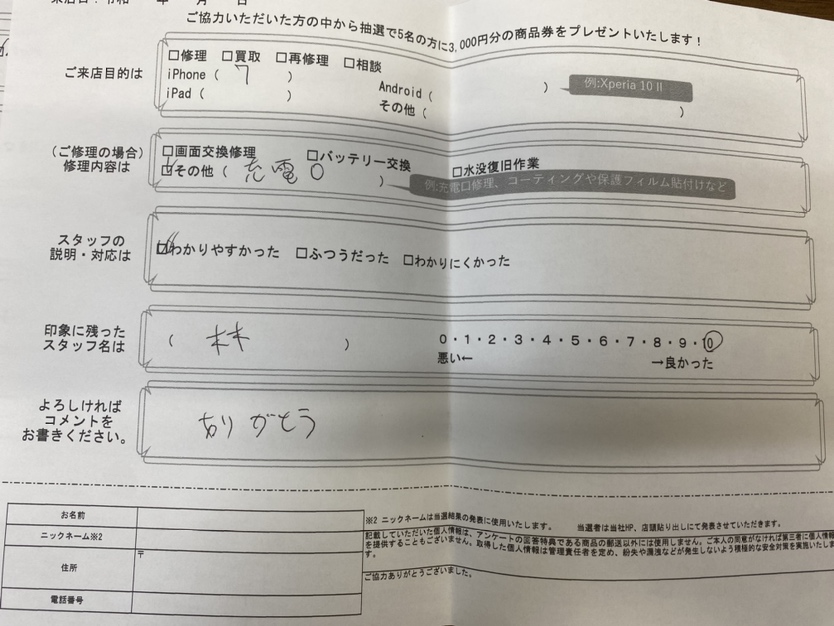 ご協力いただいた方の中から抽選で5名の方に3,000円分の商品券をプレゼントいたします！
ご来店目的は
□修理 □買取 □再修理 □相談
iPhone ( 7 ) Android ( ) 例:Xperia 10 II
iPad ( ) その他 ( )
(ご修理の場合)
修理内容は
□画面交換修理 □バッテリー交換 □水没復旧作業
□その他 ( 充電口 ) 例:充電口修理、コーティングや保護フィルム貼付けなど
スタッフの
説明・対応は
□わかりやすかった □ふつうだった □わかりにくかった
印象に残った
スタッフ名は
( 林 ) 0・1・2・3・4・5・6・7・8・9・10
悪い← →良かった
よろしければ
コメントを
お書きください。
ありがとう
お名前
ニックネーム※2
住所
〒
電話番号
※2 ニックネームは当選結果の発表に使用いたします。 当選者は当社HP、店頭貼り出しにて発表させていただきます。
記載していただいた個人情報は、アンケートの回答特典である商品の郵送以外には使用しません。ご本人の同意がなければ第三者に個人情報
を提供することもございません。取得した個人情報は管理責任者を定め、紛失や漏洩などが発生しないよう積極的な安全対策を実施いたしま
す。
ご協力ありがとうございました。